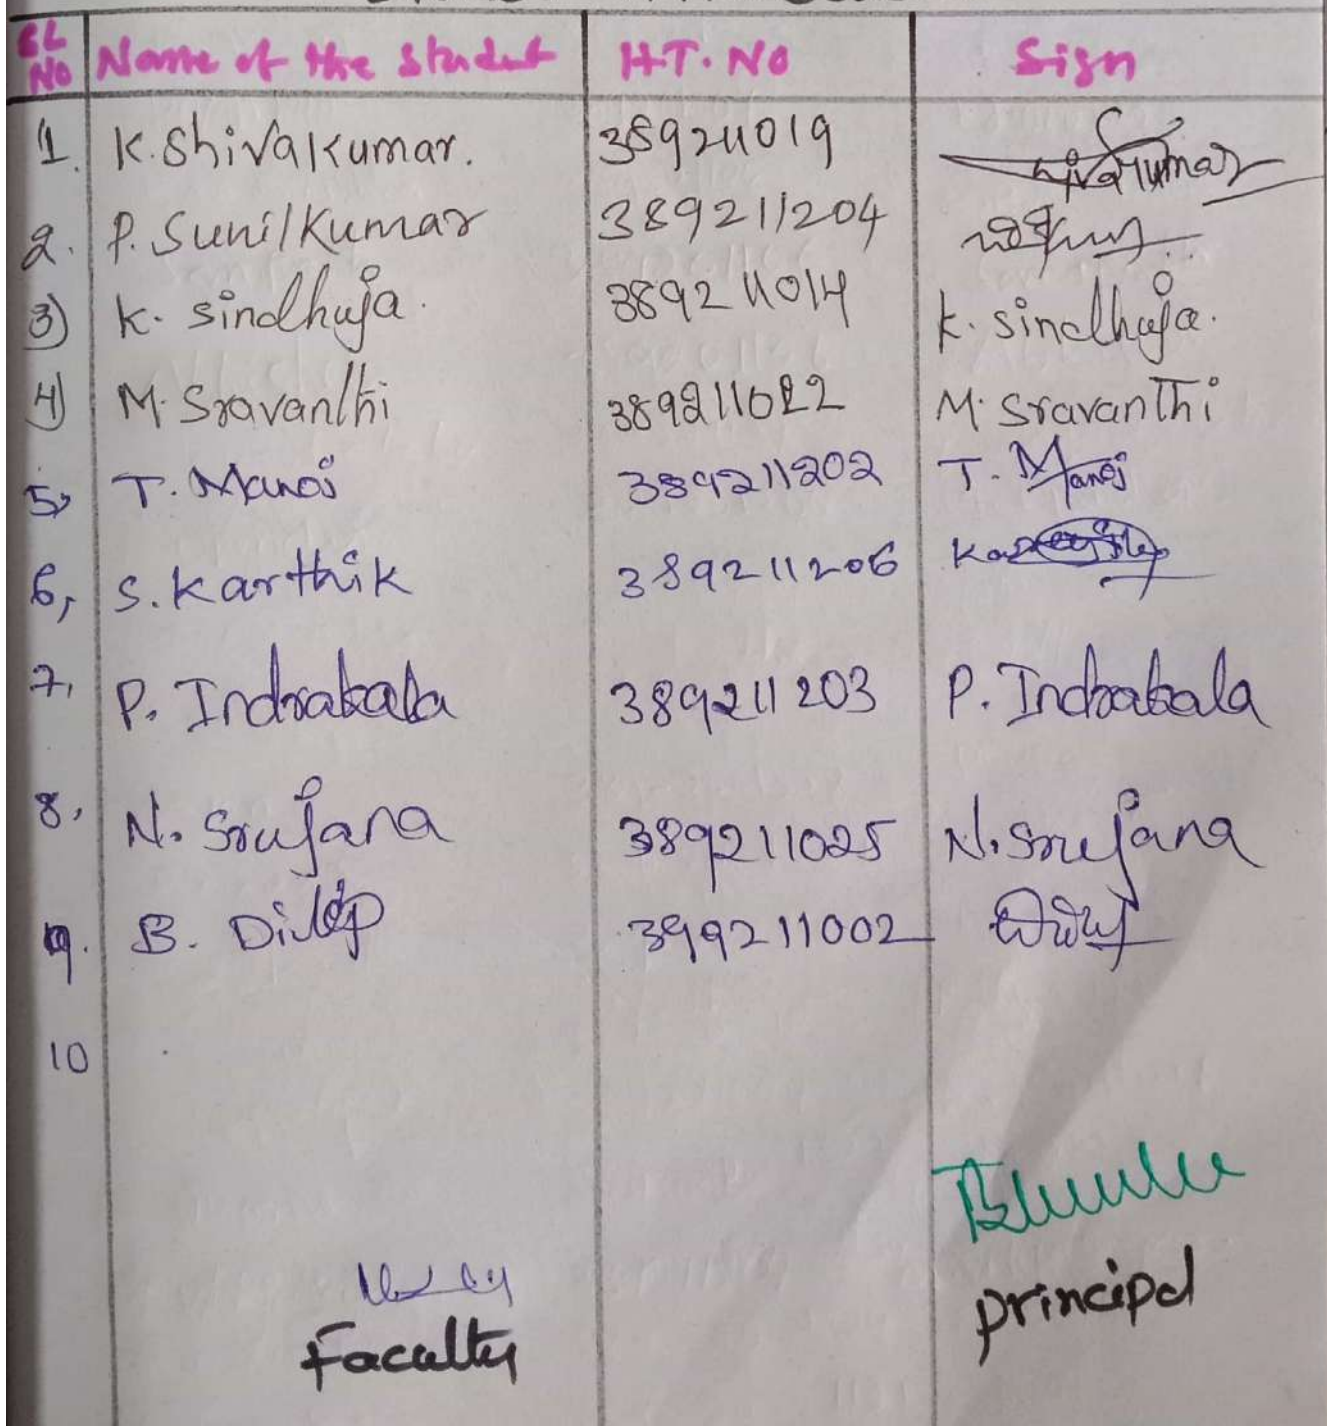 SL NO Name of the Student H.T. No Sign
1. K. Shivakumar. 389211019 Shivakumar
2. P. Sunilkumar 389211204
3) K. Sindhuja. 389211014 K. Sindhuja.
4) M. Sravanthi 389211022 M. Sravanthi
5, T. Manoj 389211202 T. Manoj
6, S. Karthik 389211206
7, P. Indrabala 389211203 P. Indrabala
8, N. Srujana 389211025 N. Srujana
9. B. Dilip 389211002
10
Faculty principal